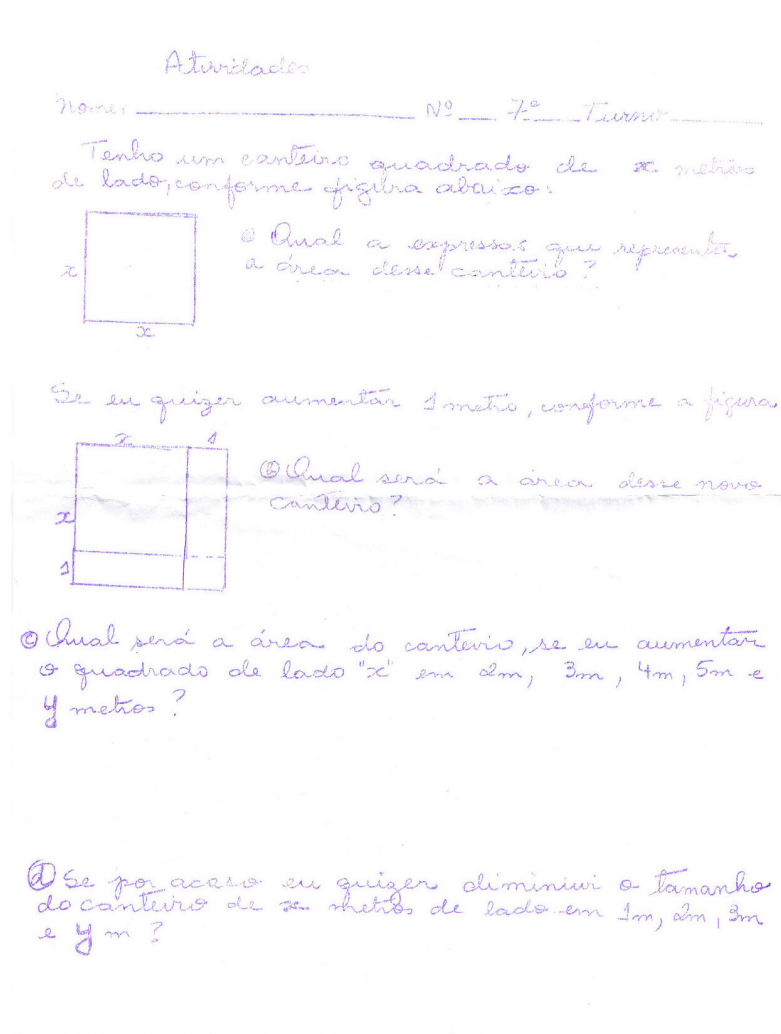 Atividades
Nome: ____ Nº ___ 7ª ___ Turno ____
Tenho um canteiro quadrado de x metros
de lado, conforme figura abaixo:
ⓐ Qual a expressão que representa
a área desse canteiro?
x
x
Se eu quizer aumentar 1 metro, conforme a figura
x 1
ⓑ Qual será a área desse novo
canteiro?
x
1
ⓒ Qual será a área do canteiro, se eu aumentar
o quadrado de lado "x" em 2m, 3m, 4m, 5m e
y metros?
ⓓ Se por acaso eu quizer diminiui o tamanho
do canteiro de x metros de lado em 1m, 2m, 3m
e y m?